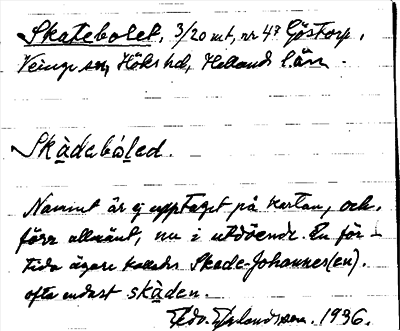 Skatebolet, 3/20 mt, nr 4? Göstorp,
Veinge sn, Höks hd, Hallands län.
Skàdebó̱led.
Namnet är ej upptaget på kartan, och,
förr allmänt, nu i utdöende. En för-
tida ägare kallades Skade-Johannes(en).
ofta endast skàden.
1936.